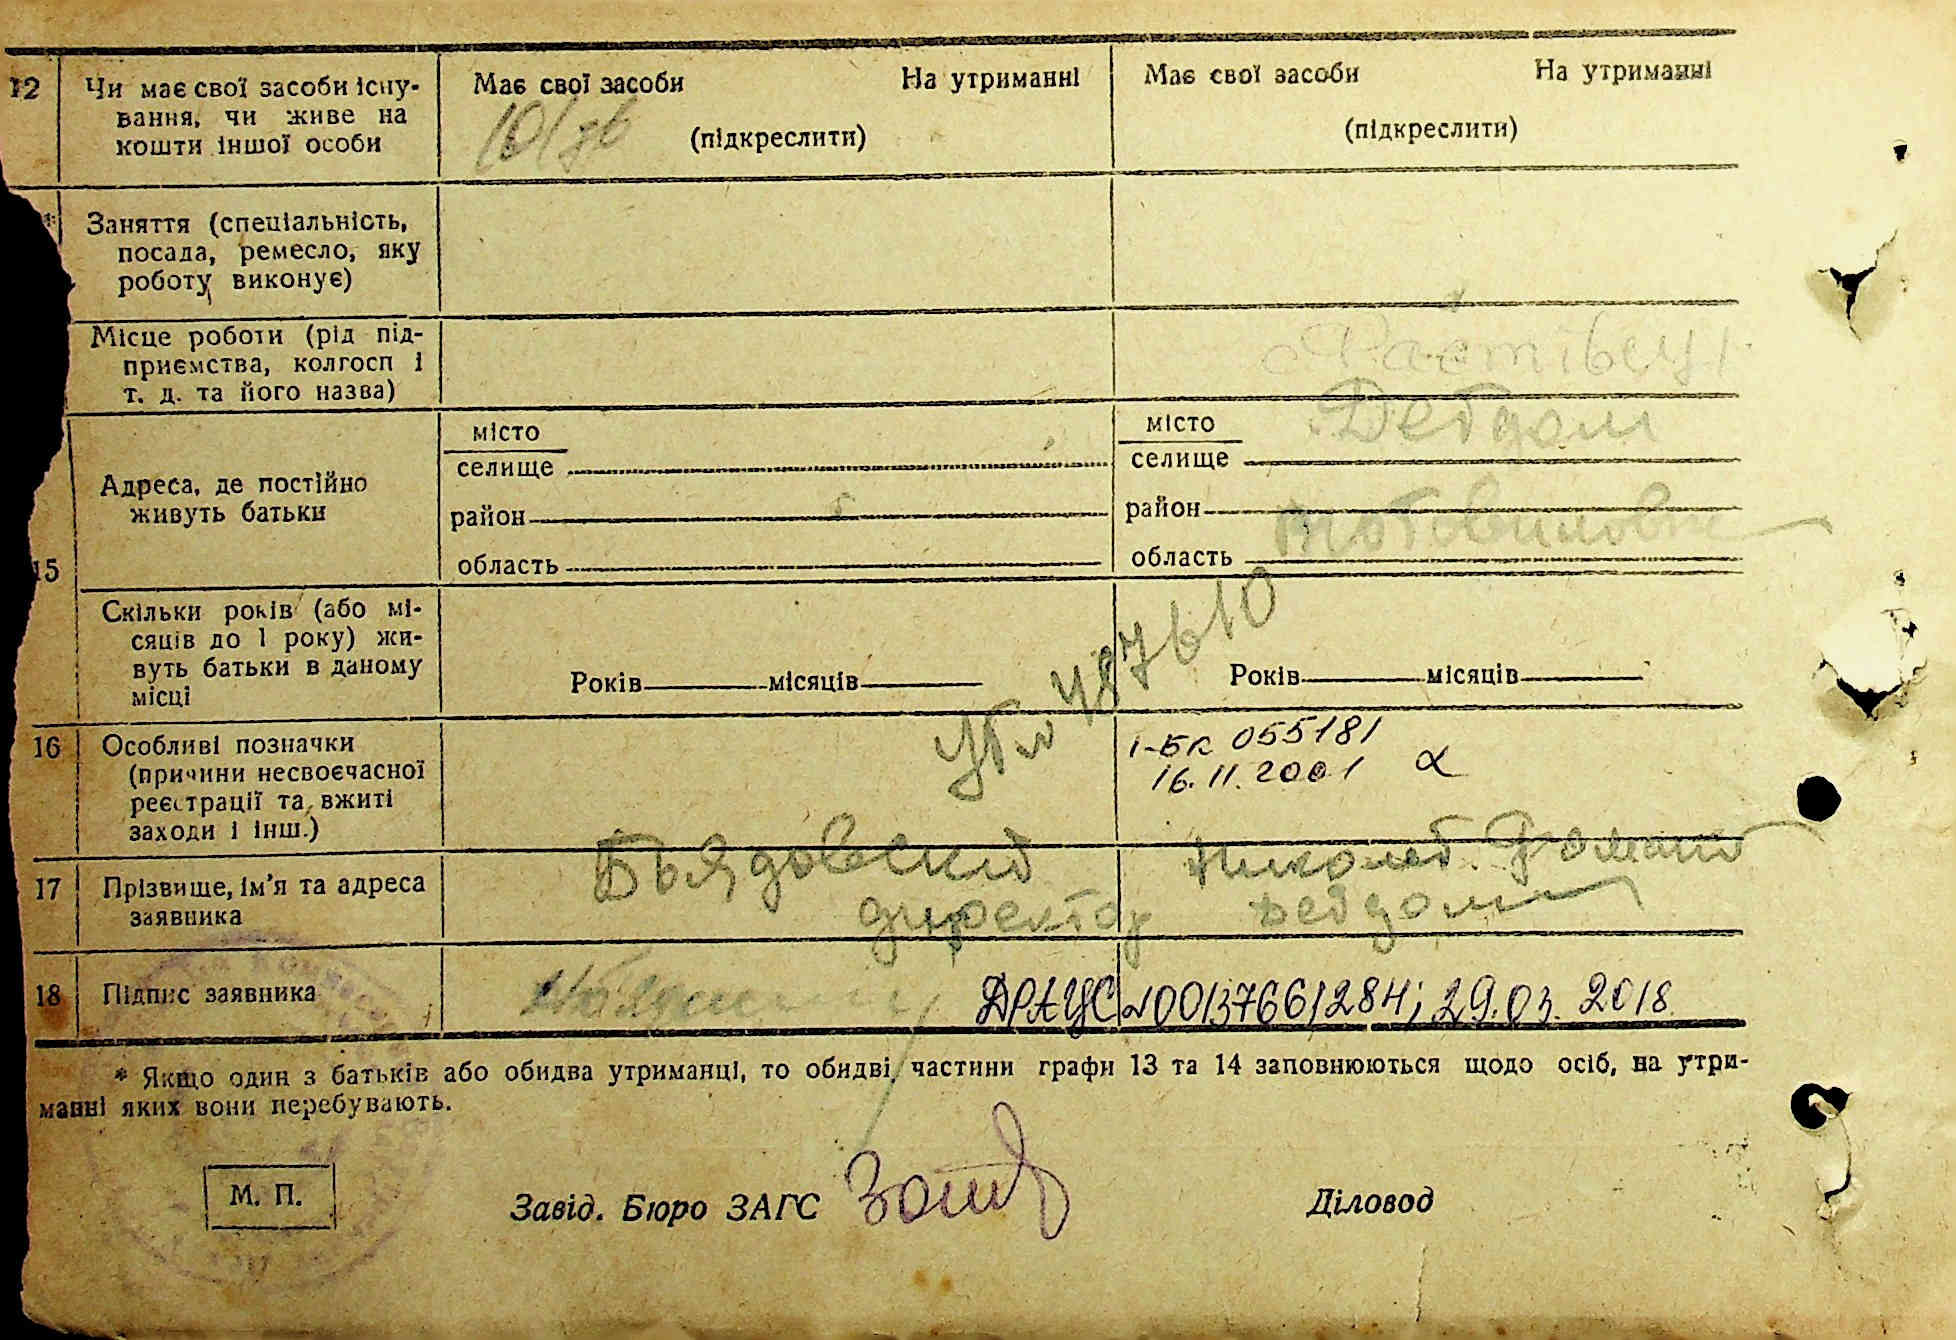 12
Чи має свої засоби існу-
вання, чи живе на
кошти іншої особи
Має свої засоби На утриманні
(підкреслити)
Має свої засоби На утриманні
(підкреслити)
Заняття (спеціальність,
посада, ремесло, яку
роботу виконує)
Місце роботи (рід під-
приємства, колгосп і
т. д. та його назва)
15
Адреса, де постійно
живуть батьки
місто
селище
район
область
місто
Детдом
селище
район
область
Скільки років (або мі-
сяців до 1 року) жи-
вуть батьки в даному
місці
Років місяців
Років місяців
487610
16
Особливі позначки
(причини несвоєчасної
реєстрації та вжиті
заходи і інш.)
1-БК 055181
16.11.2001
17
Прізвище, ім'я та адреса
заявника
директор детдом
18
Підпис заявника
ДРАЦС №00137661284; 29.03.2018
* Якщо один з батьків або обидва утриманці, то обидві частини графи 13 та 14 заповнюються щодо осіб, на утри-
манні яких вони перебувають.
М. П.
Завід. Бюро ЗАГС
Діловод